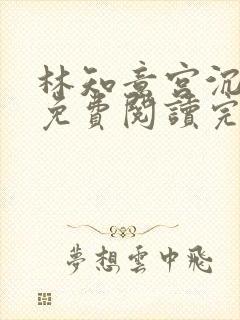 林知意宮沉
免費閱讀完
夢想雲中飛